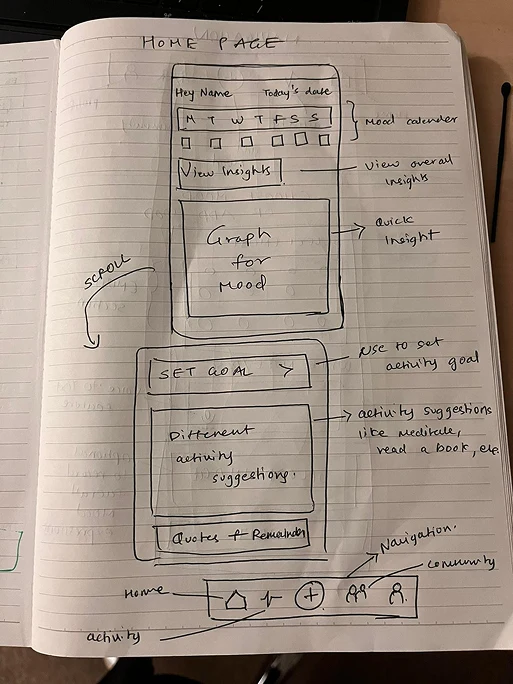 HOME PAGE
Hey Name Today's date
M T W T F S S
Mood calender
View Insights
View overall
insights
Graph
for
Mood
Quick
insight
SCROLL
SET GOAL >
Use to set
activity goal
Different
activity
suggestions.
activity suggestions
like meditate,
read a book, etc
Quotes + Remainder
Navigation.
community
Home
activity